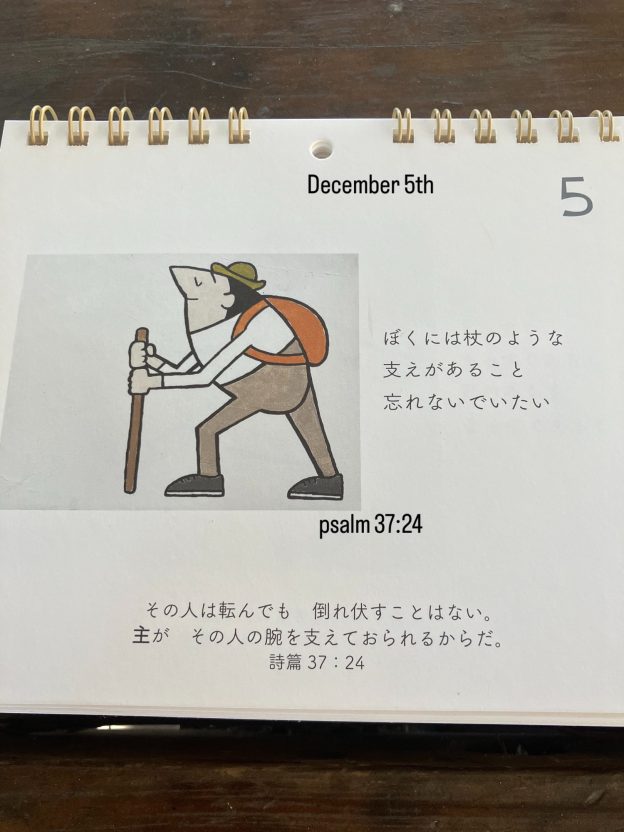 December 5th
5
ぼくには杖のような
支えがあること
忘れないでいたい
psalm 37:24
その人は転んでも　倒れ伏すことはない。
主が　その人の腕を支えておられるからだ。
詩篇 37：24